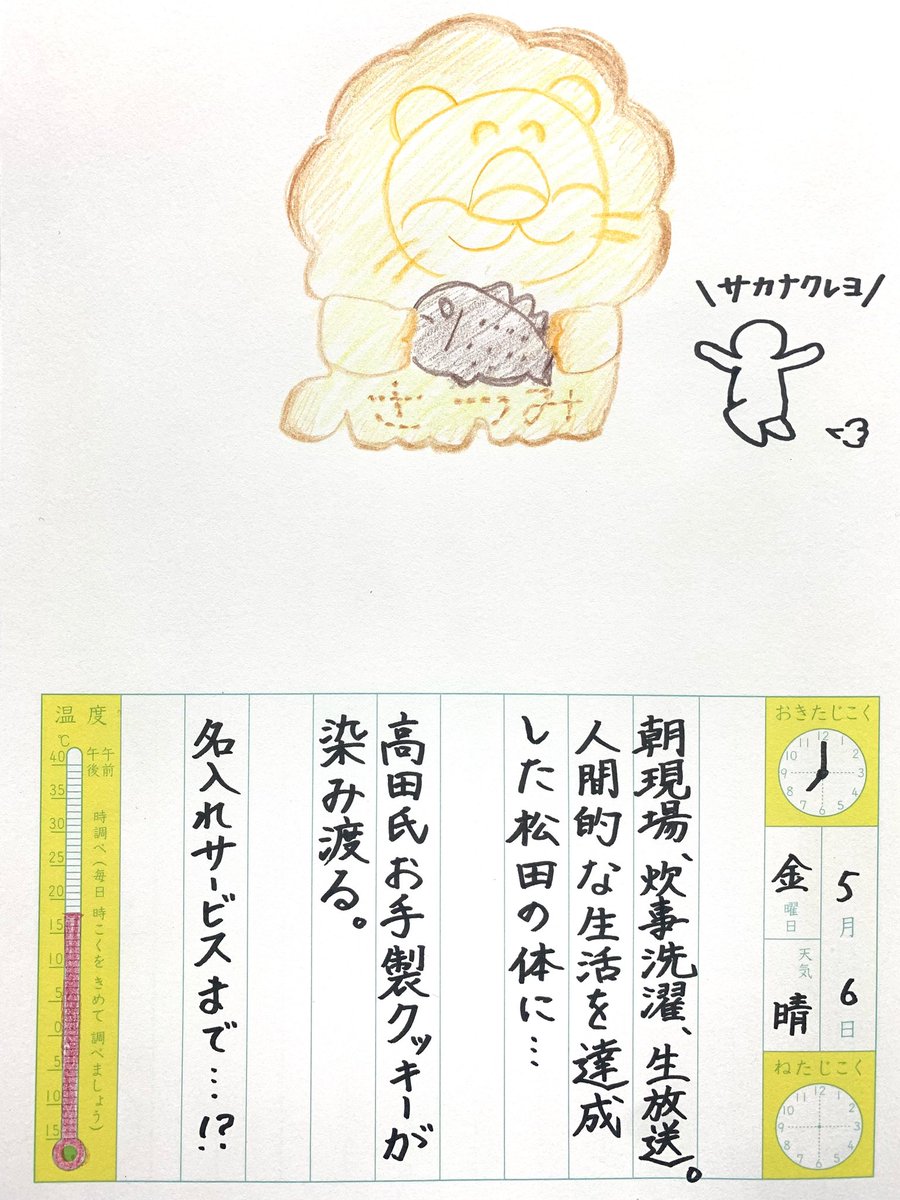 \サカナクレヨ/
さつみ
おきたじこく
12 1 2 3 4 5 6 7 8 9 10 11
5月6日
金曜日
天気
晴
ねたじこく
12 1 2 3 4 5 6 7 8 9 10 11
朝現場、炊事洗濯、生放送。
人間的な生活を達成
した松田の体に…
高田氏お手製クッキーが
染み渡る。
名入れサービスまで…!?
温度
℃
午前
午後
時調べ(毎日 時こくを きめて 調べましょう)
40
35
30
25
20
15
10
5
0
5
10
15